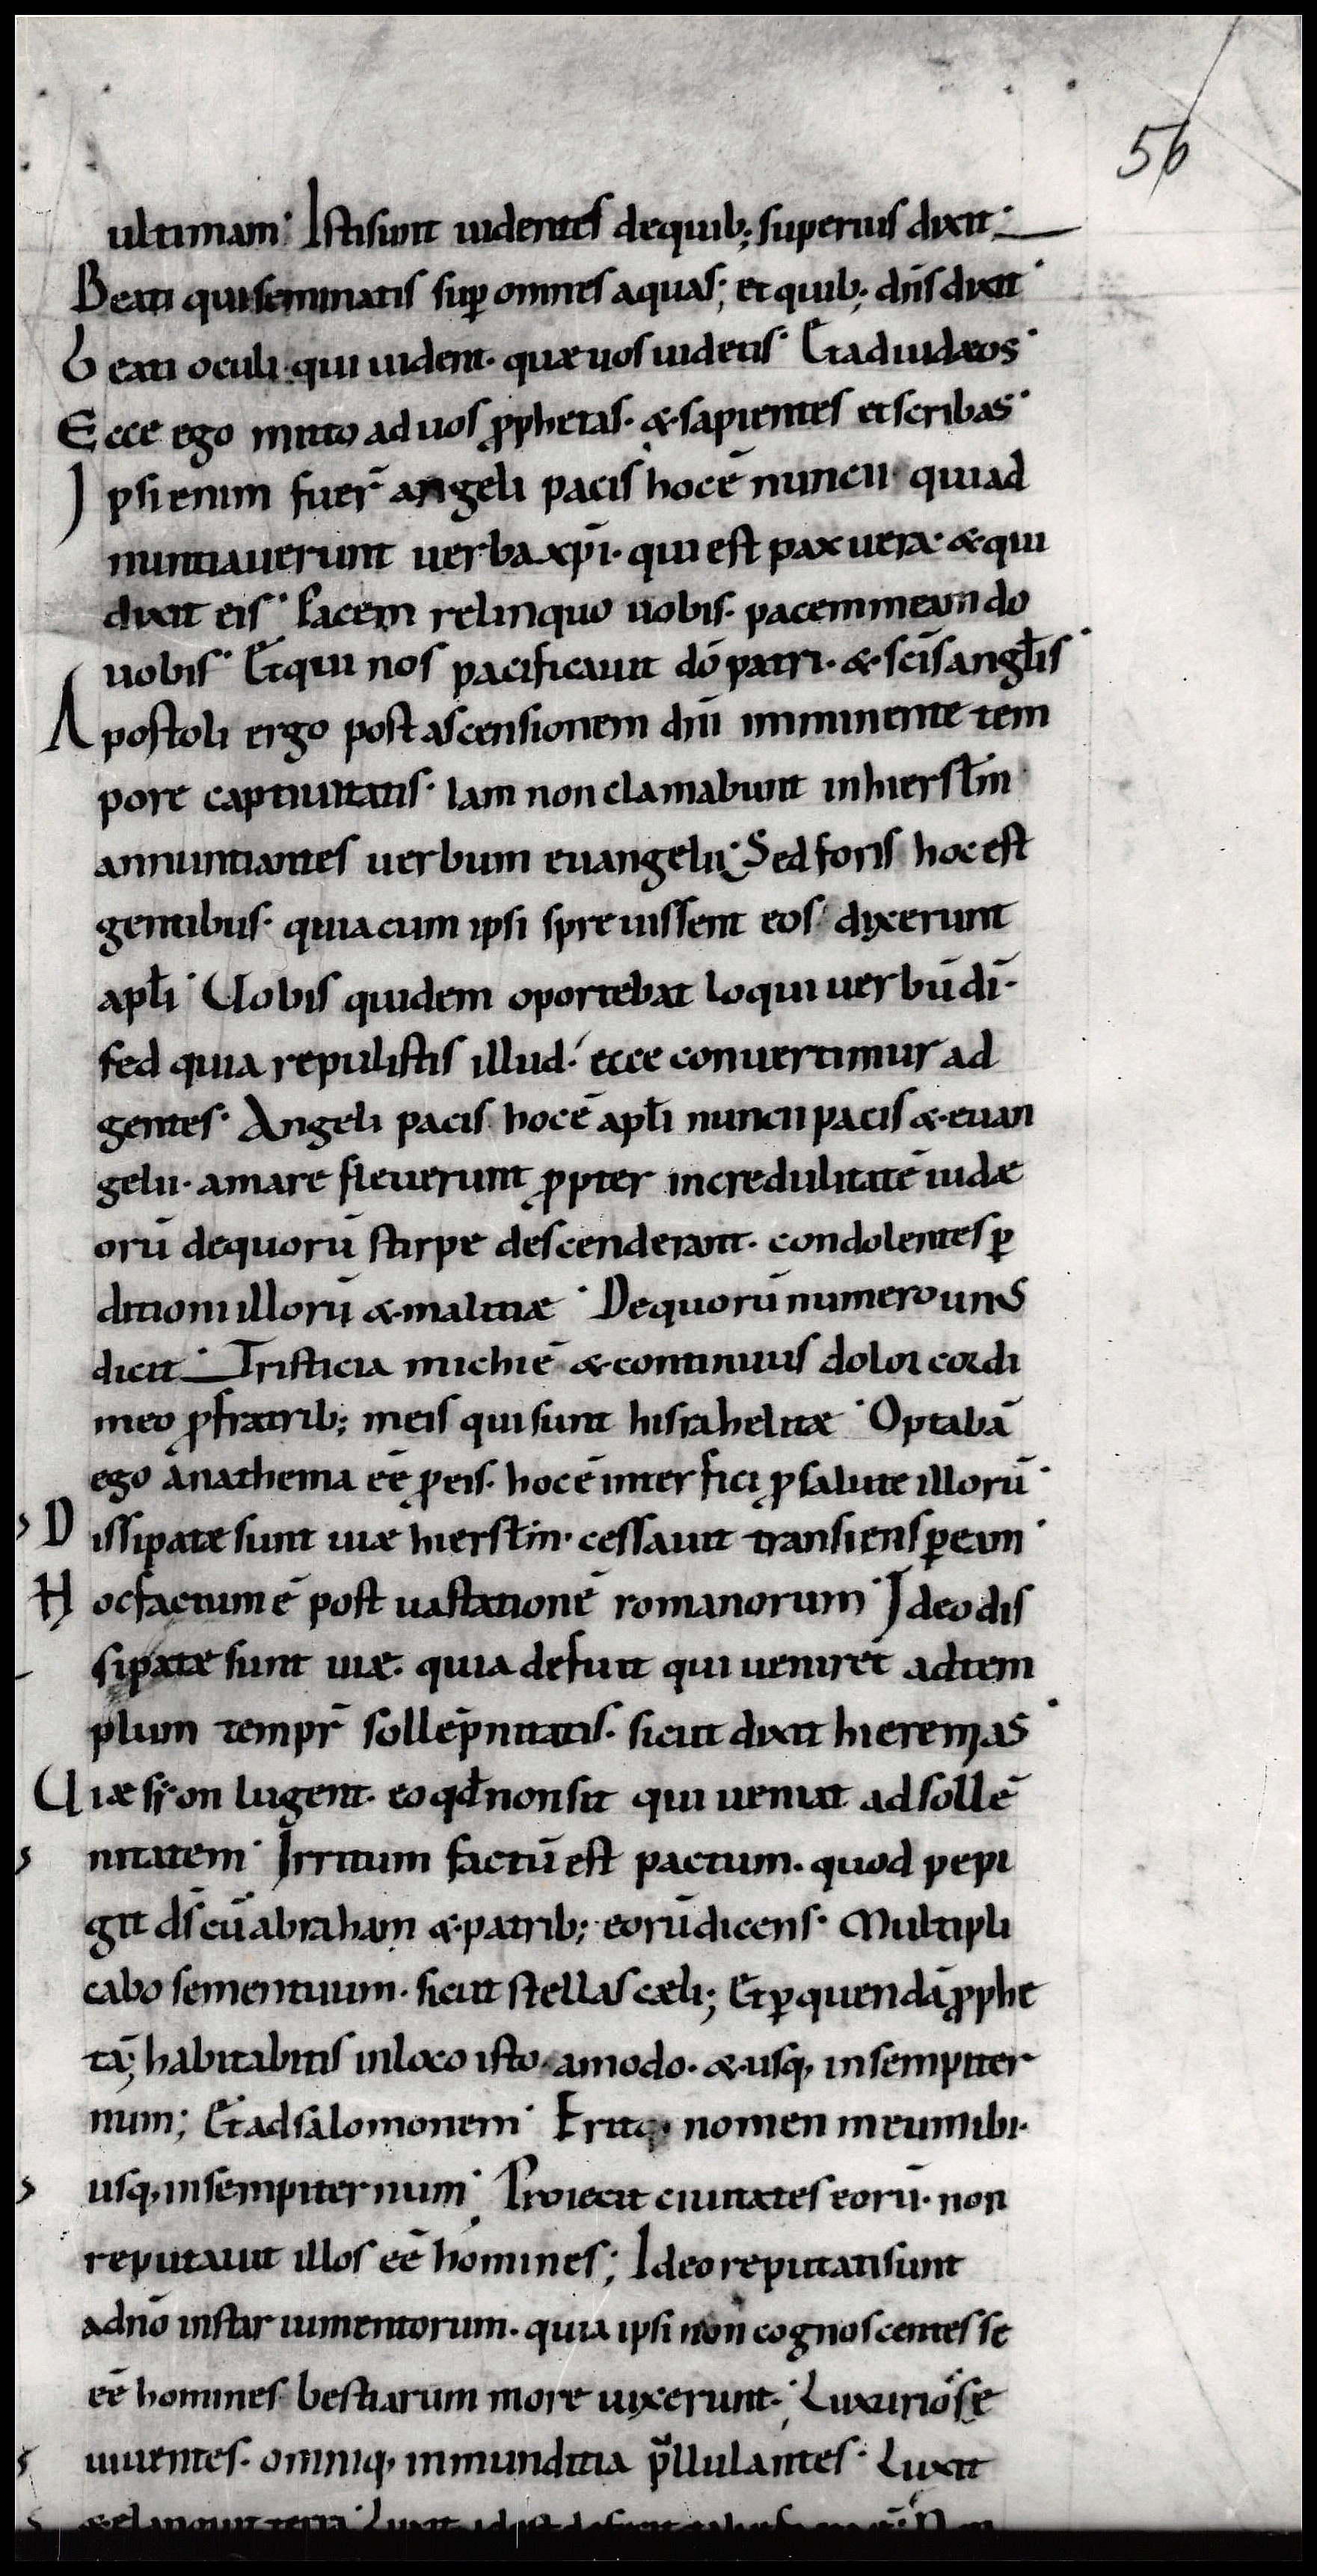 56
ultimam. Isti sunt uidentes de quib; superius dixit.
Beati qui seminatis sup omnes aquas; et quib; dñs dixit.
beati oculi qui uident. quæ uos uidetis. Et ad iudæos.
Ecce ego mitto ad uos pphetas. & sapientes et scribas.
Ipsi enim fuer̄ angeli pacis hoc ē nuncii. qui ad
nuntiauerunt uerba xp̄i. qui est pax uera. & qui
dixit eis. Pacem relinquo uobis. pacem meam do
uobis. Et qui nos pacificauit dō patri. & scīs angłis.
Apostoli ergo post ascensionem dn̄i imminente tem
pore captiuitatis. Iam non clamabunt in hierłm
annuntiantes uerbum euangelii. Sed foris hoc est
gentibus. quia cum ipsi spreuissent eos. dixerunt
apłi. Uobis quidem oportebat loqui uerbū dī.
sed quia repulistis illud. ecce conuertimur ad
gentes. Angeli pacis hoc ē apłi nuncii pacis & euan
gelii. amare fleuerunt ꝓpter incredulitatē iudæ
orū de quorū stirpe descenderant. condolentes ꝑ
ditioni illorū & malitiæ. De quorū numero unus
dicit. Tristicia michi ē & continuus dolor cordi
meo ꝓ fratrib; meis qui sunt hisrahelitæ. Optabā
ego anathema eē ꝓ eis. hoc ē interfici ꝓ salute illorū.
Dissipatæ sunt uiæ hierłm. cessauit transiens ꝑ eam.
Hoc factum ē post uastationē romanorum. Ideo dis
sipatæ sunt uiæ. quia defuit qui ueniret ad tem
plum tempr̄ sollēpnitatis. sicut dixit hieremias.
Uiæ sion lugent. eo qđ non sit qui ueniat ad sollē
nitatem. Irritum factū est pactum. quod pepi
git dš cū abraham & patrib; eorū dicens. Multipli
cabo semen tuum. sicut stellas cæli; Et ꝑ quendā ꝓphe
tā; habitabitis in loco isto. amodo. & usq; in sempiter
num; Et ad salomonem. Eritq; nomen meum ibi.
usq; in sempiternum. Proiecit ciuitates eorū. non
reputauit illos eē homines; Ideo reputati sunt
a dn̄o instar iumentorum. quia ipsi non cognoscentes se
eē homines bestiarum more uixerunt. Luxuriose
uiuentes. omniq; inmunditia pullulantes. Luxit
& elanguit terra. Luxit id est